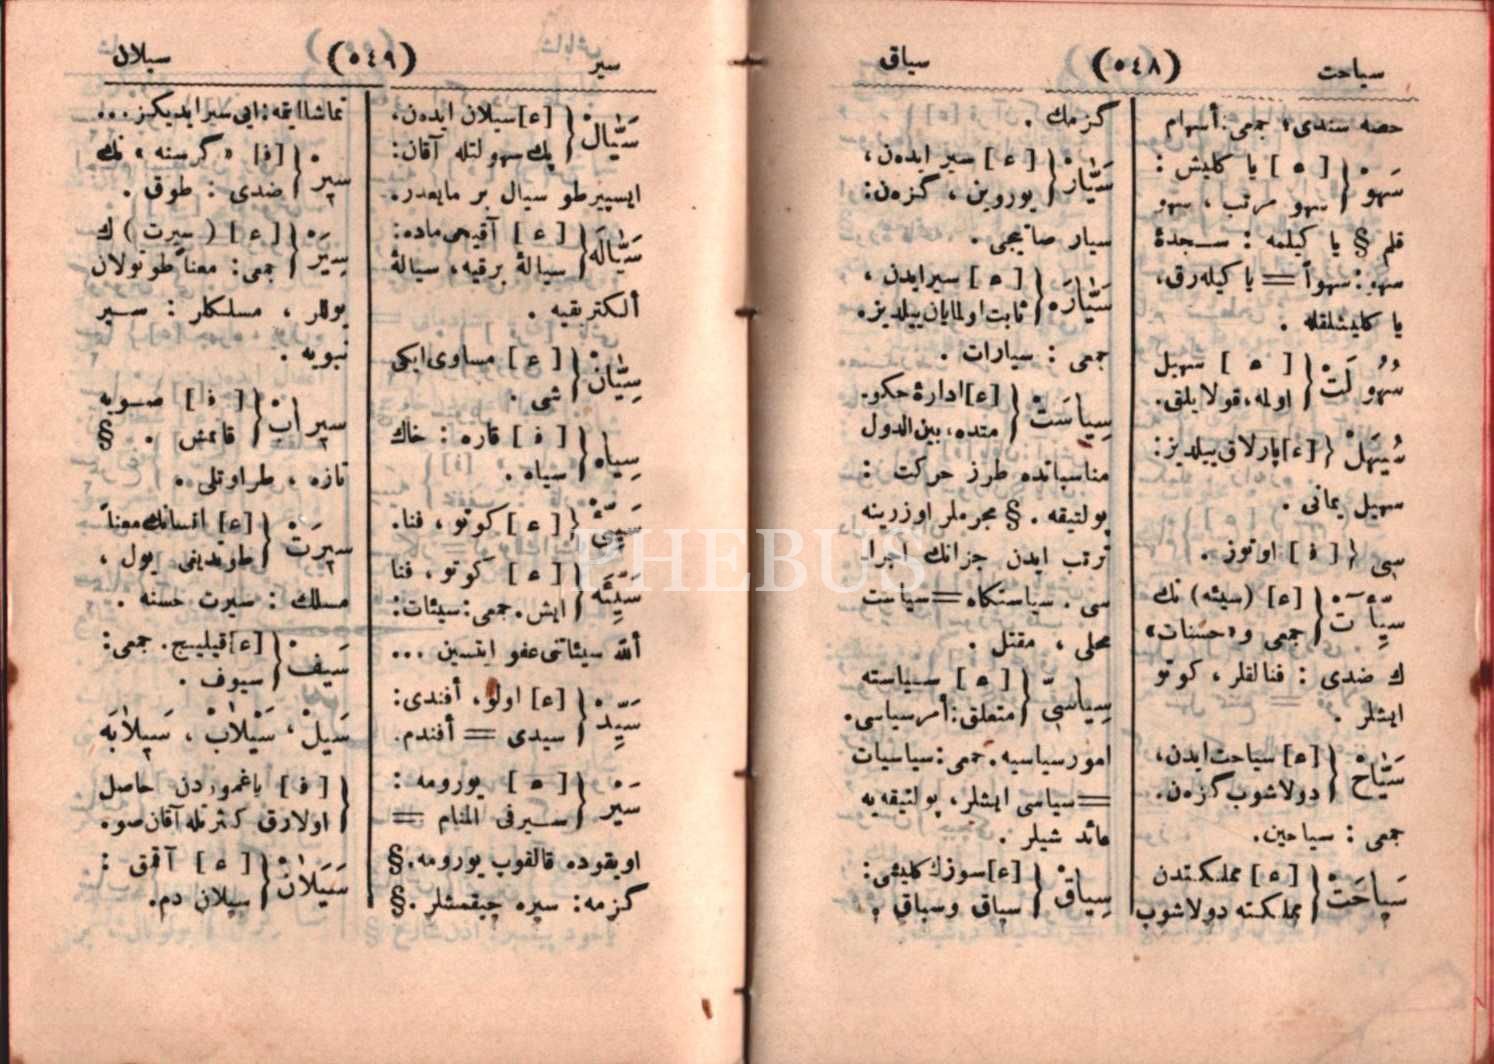 سياحت (٥٤٨) سياق
حصه سندى، جمعى: أسهام
سَهْو [ع] يا كليش:
سهو مرتب، سهو
قلم § يا كيلمه: سجدهٔ
سهو: سهواً = يا كيله رق،
يا كليشلقله.
سُهُولَتْ [ع] سهيل
اولمه، قولايلق.
سُهَيْل [ع] پارلاق ييلديز:
سهيل يمانى.
سى [ف] اوتوز.
سَيِّآت [ع] (سيئه) نك
جمعى و «حسنات»
ك ضدى: فنالقلر، كوتو
ايشلر.
سَيَّاحْ [ع] سياحت ايدن،
دولاشوب كزه‌ن.
جمعى: سياحين.
سِيَاحَتْ [ع] مملكتدن
مملكته دولاشوب
كزمك.
سَيَّارْ [ع] سير ايده‌ن،
يوروين، كزه‌ن:
سيار صاتيجى.
سَيَّارَه [ع] سير ايدن،
ثابت اولمايان ييلديز.
جمعى: سيارات.
سِيَاسَتْ [ع] ادارهٔ حكو.
متده، بين الدول
مناسباتده طرز حركت:
پولتيقه. § مجرملر اوزرينه
ترتب ايدن جزانك اجرا
سى. سياستكاه = سياست
محلى، مقتل.
سِيَاسِىّ [ع] سياسته
متعلق: أمر سياسى.
امور سياسيه. جمعى: سياسيات
= سياسى ايشلر، پولتيقه‌يه
عائد شيلر.
سِيَاقْ [ع] سوزك كليشى:
سياق وسباق
سير (٥٤٩) سيلان
سَيَّالْ [ع] سيلان ايده‌ن،
پك سهولتله آقان:
ايسپيرطو سيال بر مايعدر.
سَيَّالَه [ع] آقيجى ماده:
سيالهٔ برقيه، سيالهٔ
ألكتريقيه.
سِيَّانْ [ع] مساوى ايكى
شى.
سِيَاه [ف] قاره: خاك
سياه.
سَيِّئْ [ع] كوتو، فنا.
سَيِّئَه [ع] كوتو، فنا
ايش. جمعى: سيئات:
الله سيئاتى عفو ايتسين ...
سَيِّدْ [ع] اولو، أفندى:
سيدى = أفندم.
سَيْرْ [ع] يورومه:
سير فى المنام =
اويقوده قالقوب يورومه. §
كزمه: سيره چيقمشلر. §
تماشا ايتمه: ايى سير ايديكز ...
سير [ف] «كرسنه» نك
ضدى: طوق.
سِيَرْ [ع] (سيرت) ك
جمعى: معناً طوتولان
يوللر، مسلكلر: سير
نبويه.
سيرابْ [ف] صويه
قانمش. §
تازه، طراوتلى.
سيرَتْ [ع] انسانك معناً
طوتديغى يول،
مسلك: سيرت حسنه.
سَيْف [ع] قيليج. جمعى:
سيوف.
سَيْلْ، سَيْلَابْ، سَيلَابَه
[ف] ياغموردن حاصل
اولارق كثرتله آقان صو.
سَيَلَانْ [ع] آقمق:
سيلان دم.
PHEBUS